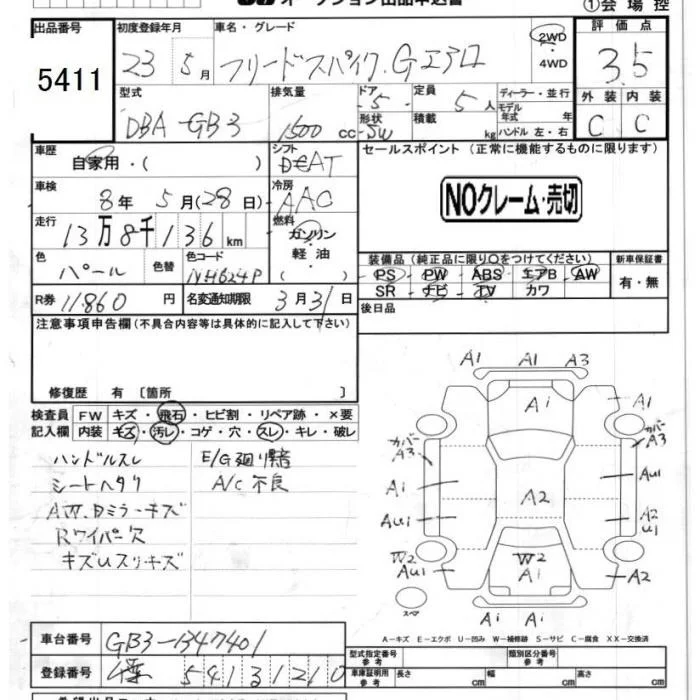 オークション出品申込書
①会場控
出品番号
5411
初度登録年月
23 5月
車名・グレード
フリードスパイク.Gエアロ
2WD
・4WD
評価点
3.5
外装 内装
C C
型式
DBA-GB3
排気量
1500 cc
ドア
5
形状
5W
定員
5人
積載
kg
ディーラー・並行
モデル年式 年
ハンドル 左・右
車歴
自家用・( )
シフト
DEAT
セールスポイント(正常に機能するものに限ります)
NOクレーム・売切
車検
8年 5月(28日)
冷房
AAC
走行
13万8千136km
燃料
ガソリン
軽油
( )
色
パール
色替
色コード
NH624P
装備品(純正品に限り○をつけてください)
PS・PW・ABS・エアB・AW
SR・ナビ・TV・カワ
新車保証書
有・無
R券 11860円
名変通知期限 3月31日
後日品
注意事項申告欄(不具合内容等は具体的に記入して下さい)
修復歴 有 〔箇所 〕
検査員記入欄
FW キズ・飛石・ヒビ割・リペア跡・×要
内装 キズ・汚レ・コゲ・穴・スレ・キレ・破レ
ハンドルスレ
シートヘタリ
AW.Dミラーキズ
Rワイパー欠
キズUスリキズ
E/G廻り異音
A/C不良
A1 A1 A3
A1 A1
カバー A3
カバー A3
A1 AU1
A2
AU1 A2 U1
W2 AU1
W2 A1
A2
A1 A1
スペア
A-キズ E-エクボ U-凹み W-補修跡 S-サビ C-腐食 XX-交換済
車台番号
GB3-1347401
登録番号
541 31210
型式指定番号 参考
類別区分番号 参考
車庫証明用 参考
長さ cm
幅 cm
高さ cm